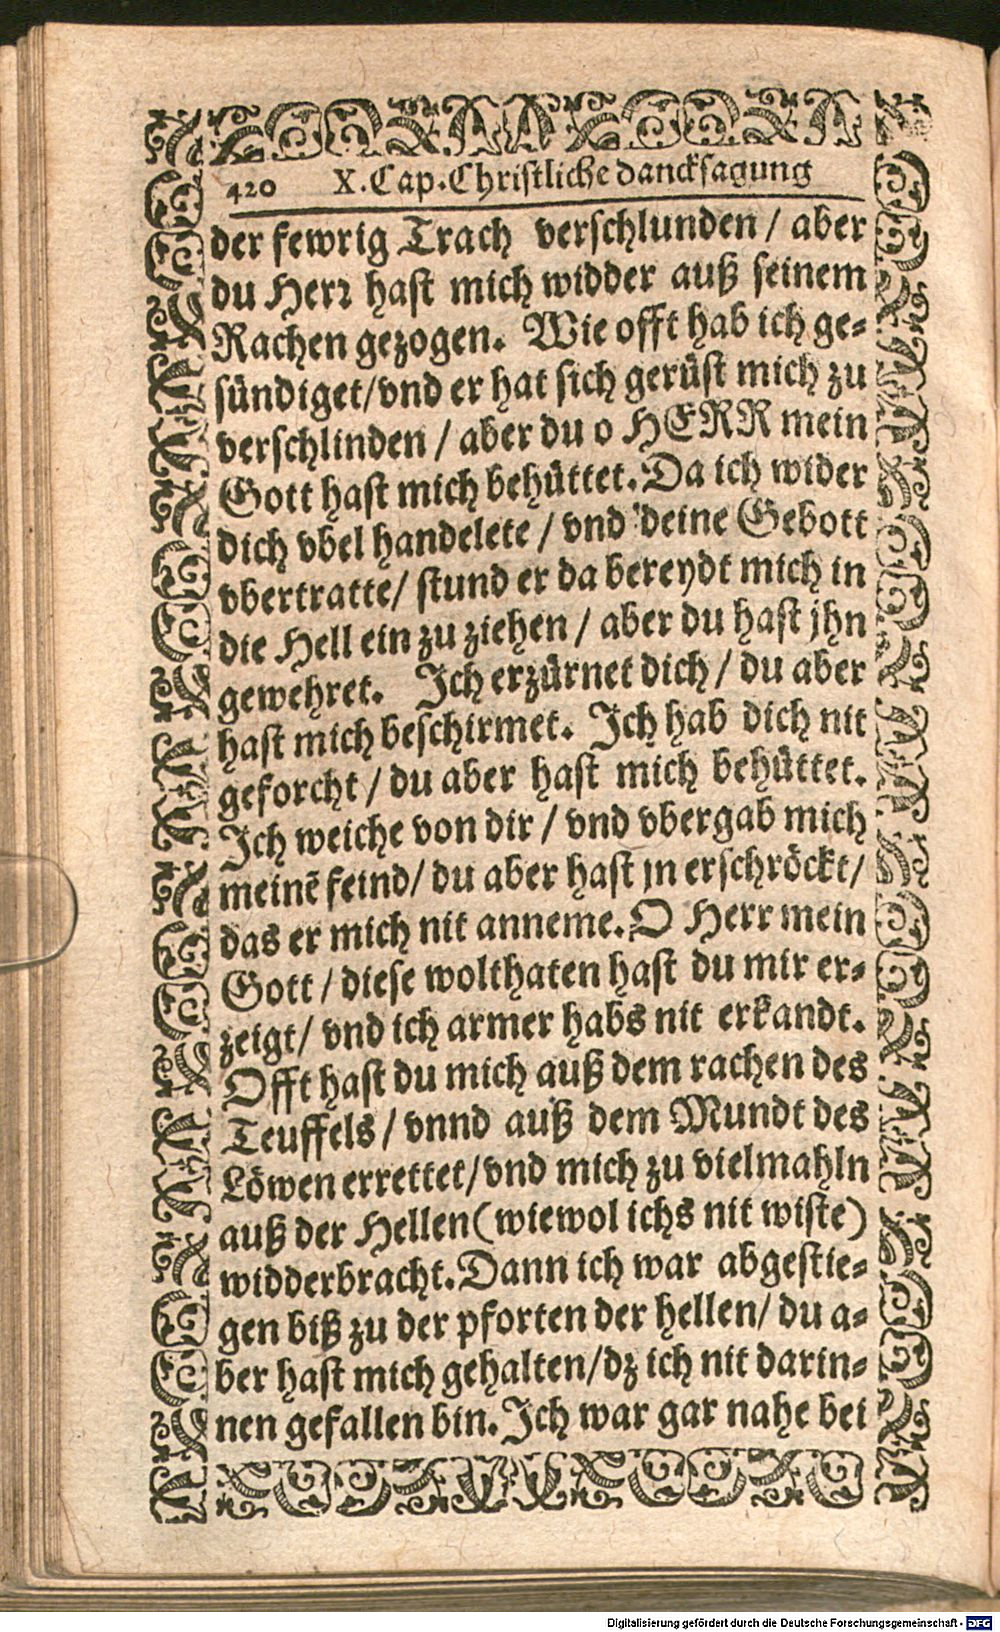 420 X. Cap. Christliche dancksagung
der fewrig Trach verschlunden / aber
du Herr hast mich widder auß seinem
Rachen gezogen. Wie offt hab ich ge=
sündiget/vnd er hat sich gerüst mich zu
verschlinden / aber du o HERR mein
Gott hast mich behüttet. Da ich wider
dich vbel handelete / vnd deine Gebott
vbertratte/ stund er da bereydt mich in
die Hell ein zu ziehen / aber du hast jhn
gewehret. Ich erzürnet dich / du aber
hast mich beschirmet. Ich hab dich nit
geforcht / du aber hast mich behüttet.
Ich weiche von dir / vnd vbergab mich
meinẽ feind/ du aber hast jn erschröckt/
das er mich nit anneme. O Herr mein
Gott / diese wolthaten hast du mir er=
zeigt/ vnd ich armer habs nit erkandt.
Offt hast du mich auß dem rachen des
Teuffels / vnnd auß dem Mundt des
Löwen errettet/vnd mich zu vielmahln
auß der Hellen (wiewol ichs nit wiste)
widderbracht. Dann ich war abgestie=
gen biß zu der pforten der hellen/ du a=
ber hast mich gehalten/dz ich nit darin=
nen gefallen bin. Ich war gar nahe bei
Digitalisierung gefördert durch die Deutsche Forschungsgemeinschaft - DFG